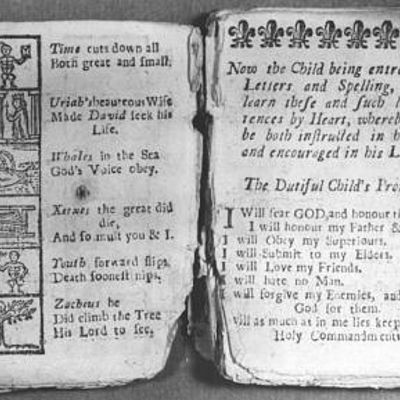 Time cuts down all
Both great and small.
Uriah's beauteous Wife
Made David seek his
Life.
Whales in the Sea
God's Voice obey.
Xerxes the great did
die,
And so must you & I.
Youth forward slips
Death soonest nips.
Zacheus he
Did climb the Tree
His Lord to see,
Now the Child being entre
Letters and Spelling,
learn these and such l
tences by Heart, whereb
be both instructed in h
and encouraged in his L
The Dutiful Child's Pro
I Will fear GOD, and honour th
I will honour my Father &
I will Obey my Superiours.
I will Submit to my Elders.
I will Love my Friends.
I will hate no Man.
I will forgive my Enemies, and
God for them.
will as much as in me lies keep
Holy Commandments